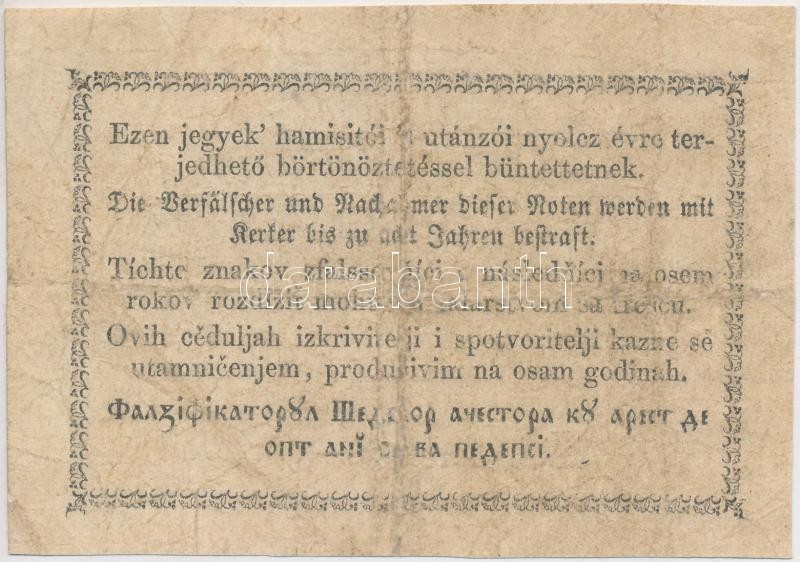 Ezen jegyek' hamisitói és utánzói nyolcz évre ter-
jedhető börtönöztetéssel büntettetnek.
Die Verfälscher und Nachahmer dieser Noten werden mit
Kerker bis zu acht Jahren bestraft.
Tíchto znakov na osem
rokov
Ovih cěduljah izkrivitelji i spotvoritelji kazne se
utamničenjem, produživim na osam godinah.
Фалзіфікаторꙋл ачестора кꙋ арест де
опт анĭ ва педепсі.
darabanth